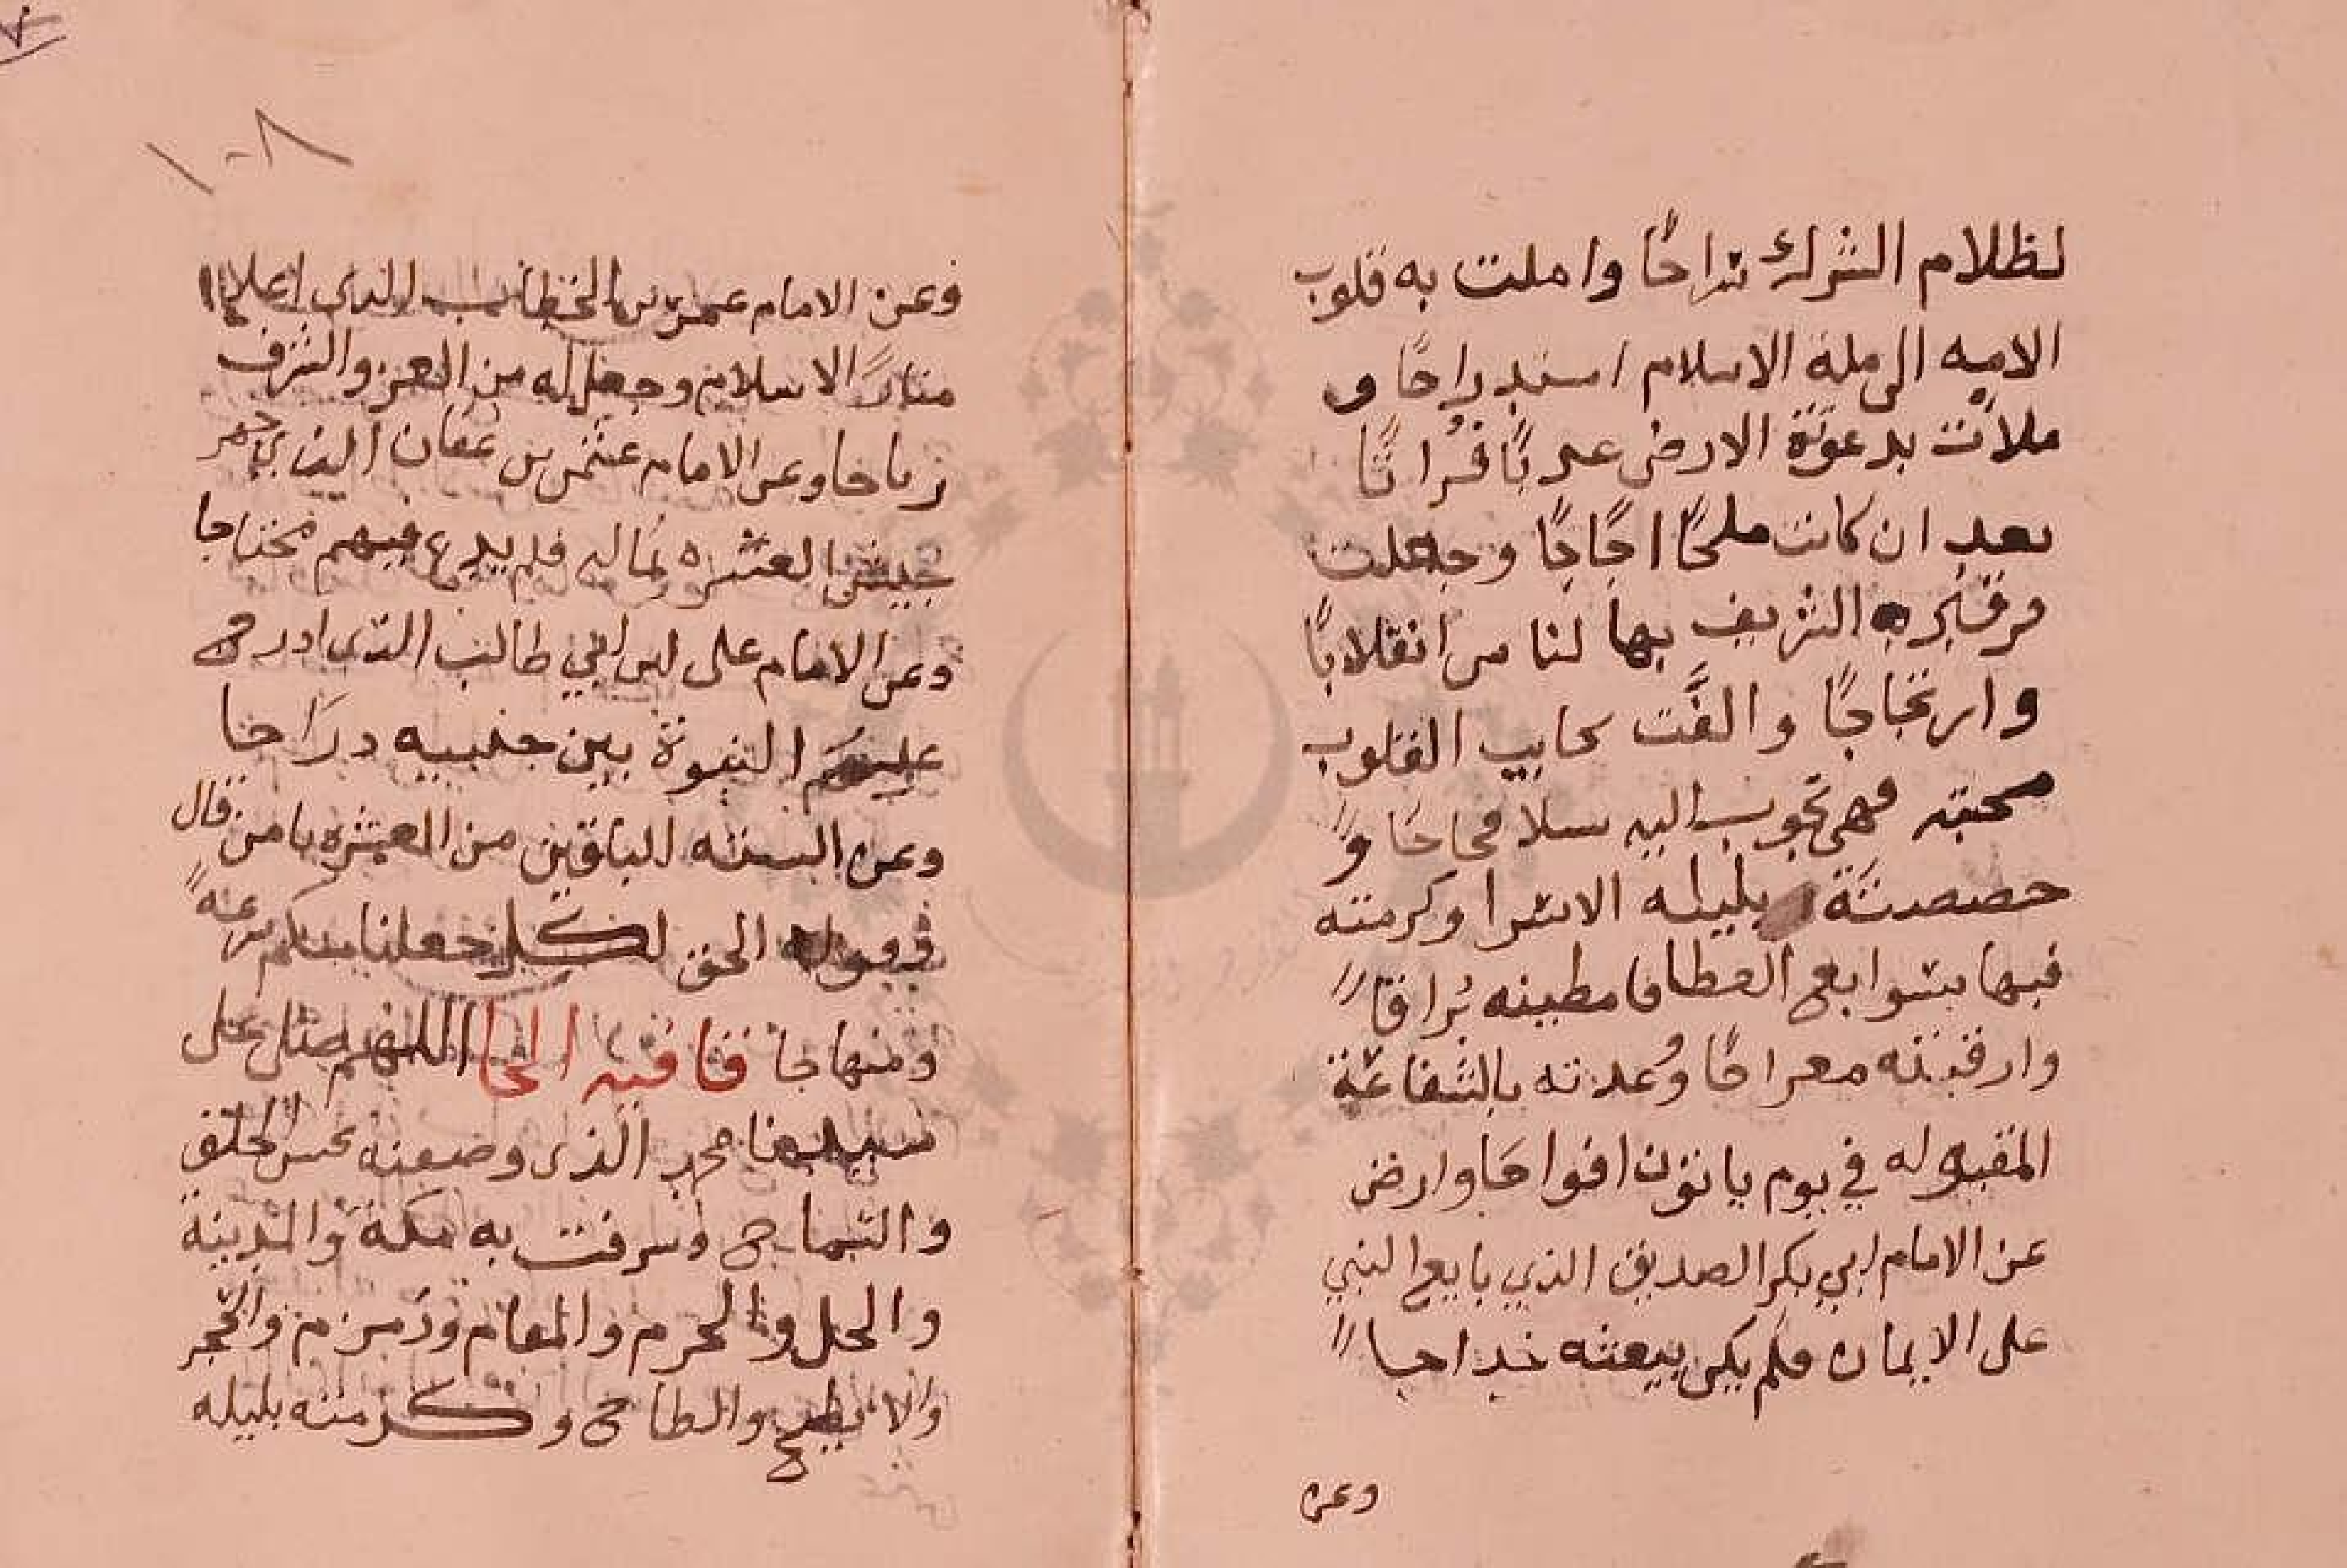 لظلام الشرك سراجًا واملت به قلوب
الاميه الى ملة الاسلام استدراجًا و
ملأت بدعوته الارض عدبًا فراتًا
بعد ان كانت ملحًا اجاجًا وجعلت
بها لنا من انقلابًا
وارتجاجًا والفَّت نحايب القلوب
محبته فهي تجوب اليه سلا فجاجًا و
خصصته بليله الاسرا وكرمته
فيها بسوابع العطافا مطيته بُراقًا
وارقيته معراجًا ووعدته بالشفاعة
المقبوله في يوم ياتون افواجًا وارض
عن الامام ابي بكر الصديق الذي بايع النبي
على الايمان فلم يكن بيعته خداجا
وعن
١٠٨
وعن الامام عمر بن الخطاب الذي اعلا
منار الاسلام وجعل له من العز والشرف
رتاجا وعن الامام عثمن بن عفان الذي جهر
جيش العسره بماله فلم يدع فيهم محتاجا
وعن الامام على ابن ابي طالب الذي ادرج
علم النبوة بين جنبيه دراجا
وعن الستة الباقين من العشره يا من قال
وقوله الحق لكل جعلنا منكم شرعة
ومنهاجا قافيه الحا اللهم صلى على
سيدنا محمد الذي وصفته بحسن الخلق
والسماح وشرفت به مكة والمدينة
والحل والحرم والمقام وزمزم والحجر
والابطح والطاح وكرمته بليله